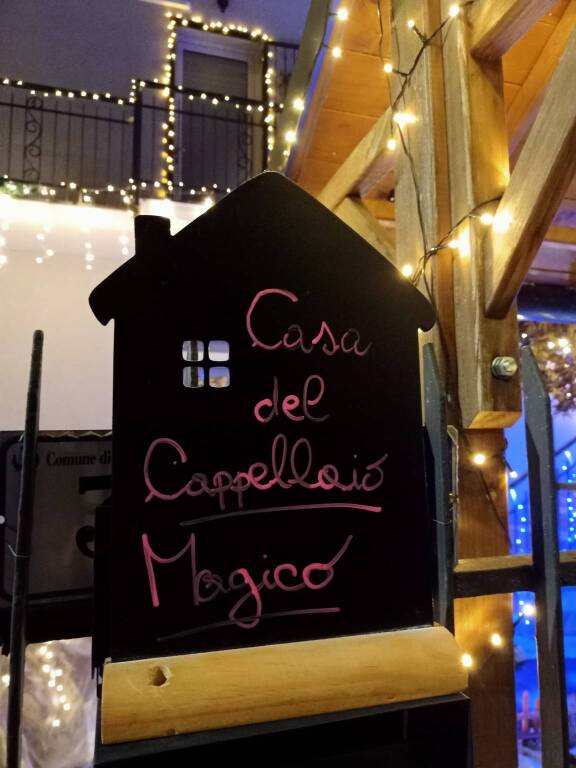 Casa
del
Cappellaio
Magico
Comune di